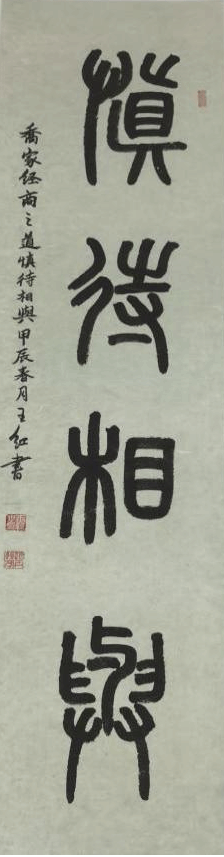 慎待相與
喬家经商之道慎待相與甲辰春月王红書